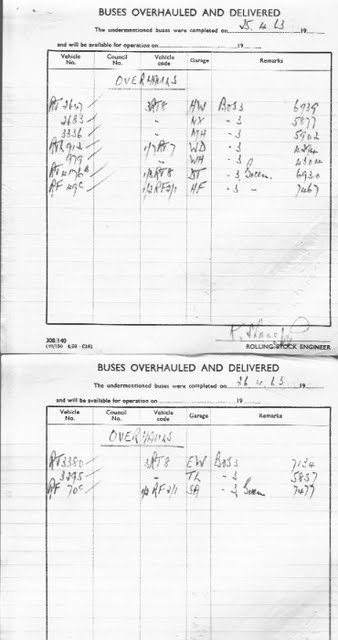 BUSES OVERHAULED AND DELIVERED
The undermentioned buses were completed on 25.4.63 19
and will be available for operation on 19
Vehicle No. Council No. Vehicle code Garage Remarks
OVERHAULS
RT 2647 3RT8 HW BOSS 6939
2683 - NX - 3 5877
3336 - MH - 3 5902
RTL 912 1/7 RT7 WD - 3
979 - WH - 3
RT 3RT8 DT - 3 Green 6930
RF 49C RF2/1 HF - 3 - 7467
308/140
ROLLING STOCK ENGINEER
BUSES OVERHAULED AND DELIVERED
The undermentioned buses were completed on 26.4.63 19
and will be available for operation on 19
Vehicle No. Council No. Vehicle code Garage Remarks
OVERHAULS
RT 3380 3RT8 EW BOSS 7134
3295 - TL - 3 5857
RF 70C RF2/1 SA - 3 Green 7477